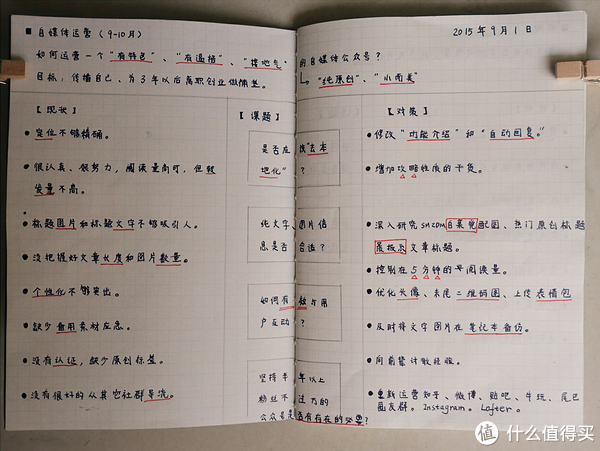 ■ 自媒体运营（9-10月）
2015年9月1日
如何运营一个“有特色”、“有逼格”、“接地气”的自媒体公众号？
目标：传播自己、为3年以后离职创业做铺垫。
“纯原创”、“小而美”
【现状】
• 定位不够精确。
• 很认真、很努力，阅读量尚可，但转
发量不高。
• 标题图片和标题文字不够吸引人。
• 没把握好文章长度和图片数量。
• 个性化不够突出。
• 缺少备用素材应急。
• 没有认证，缺少原创标签。
• 没有很好的从其它社群导流。
【课题】
是否应找“去本
地化”？
纯文字、图片信
息是否合适？
如何有效与用
户互动？
坚持半年以上
粉丝不过万的
公众号是否有存在的必要？
【对策】
• 修改“功能介绍”和“自动回复。”
• 增加攻略性质的干货。
• 深入研究smzdm自景观配图、热门原创标题
文章标题。
• 控制在5分钟的平阅读量。
• 优化头像、末尾二维码图、上传表情包
• 及时将文字图片在笔记本备份。
• 向前辈讨教经验。
• 重新运营知乎、微博、贴吧、牛玩、尾巴
朋友群。Instagram。Lofter。
值 什么值得买